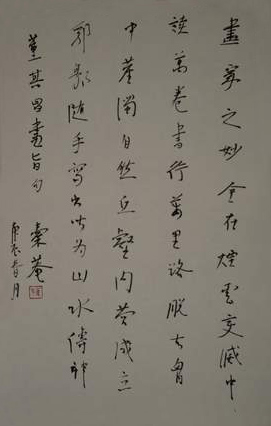 畫家之妙全在煙雲變滅中
讀萬卷書行萬里路脫去胸
中塵濁自然丘壑内營成立
隨手寫出皆为山水傳神
董其昌畫旨句
庚辰春月